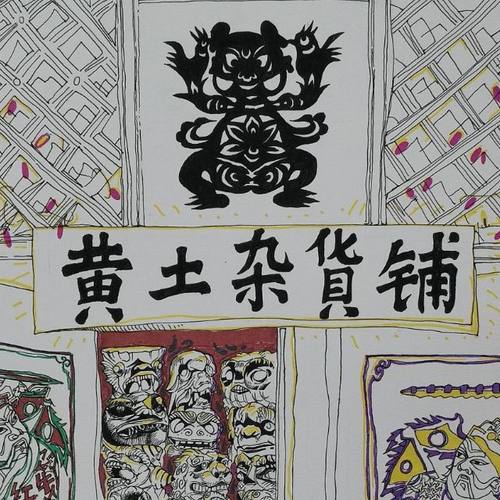 黄土杂貨铺
红